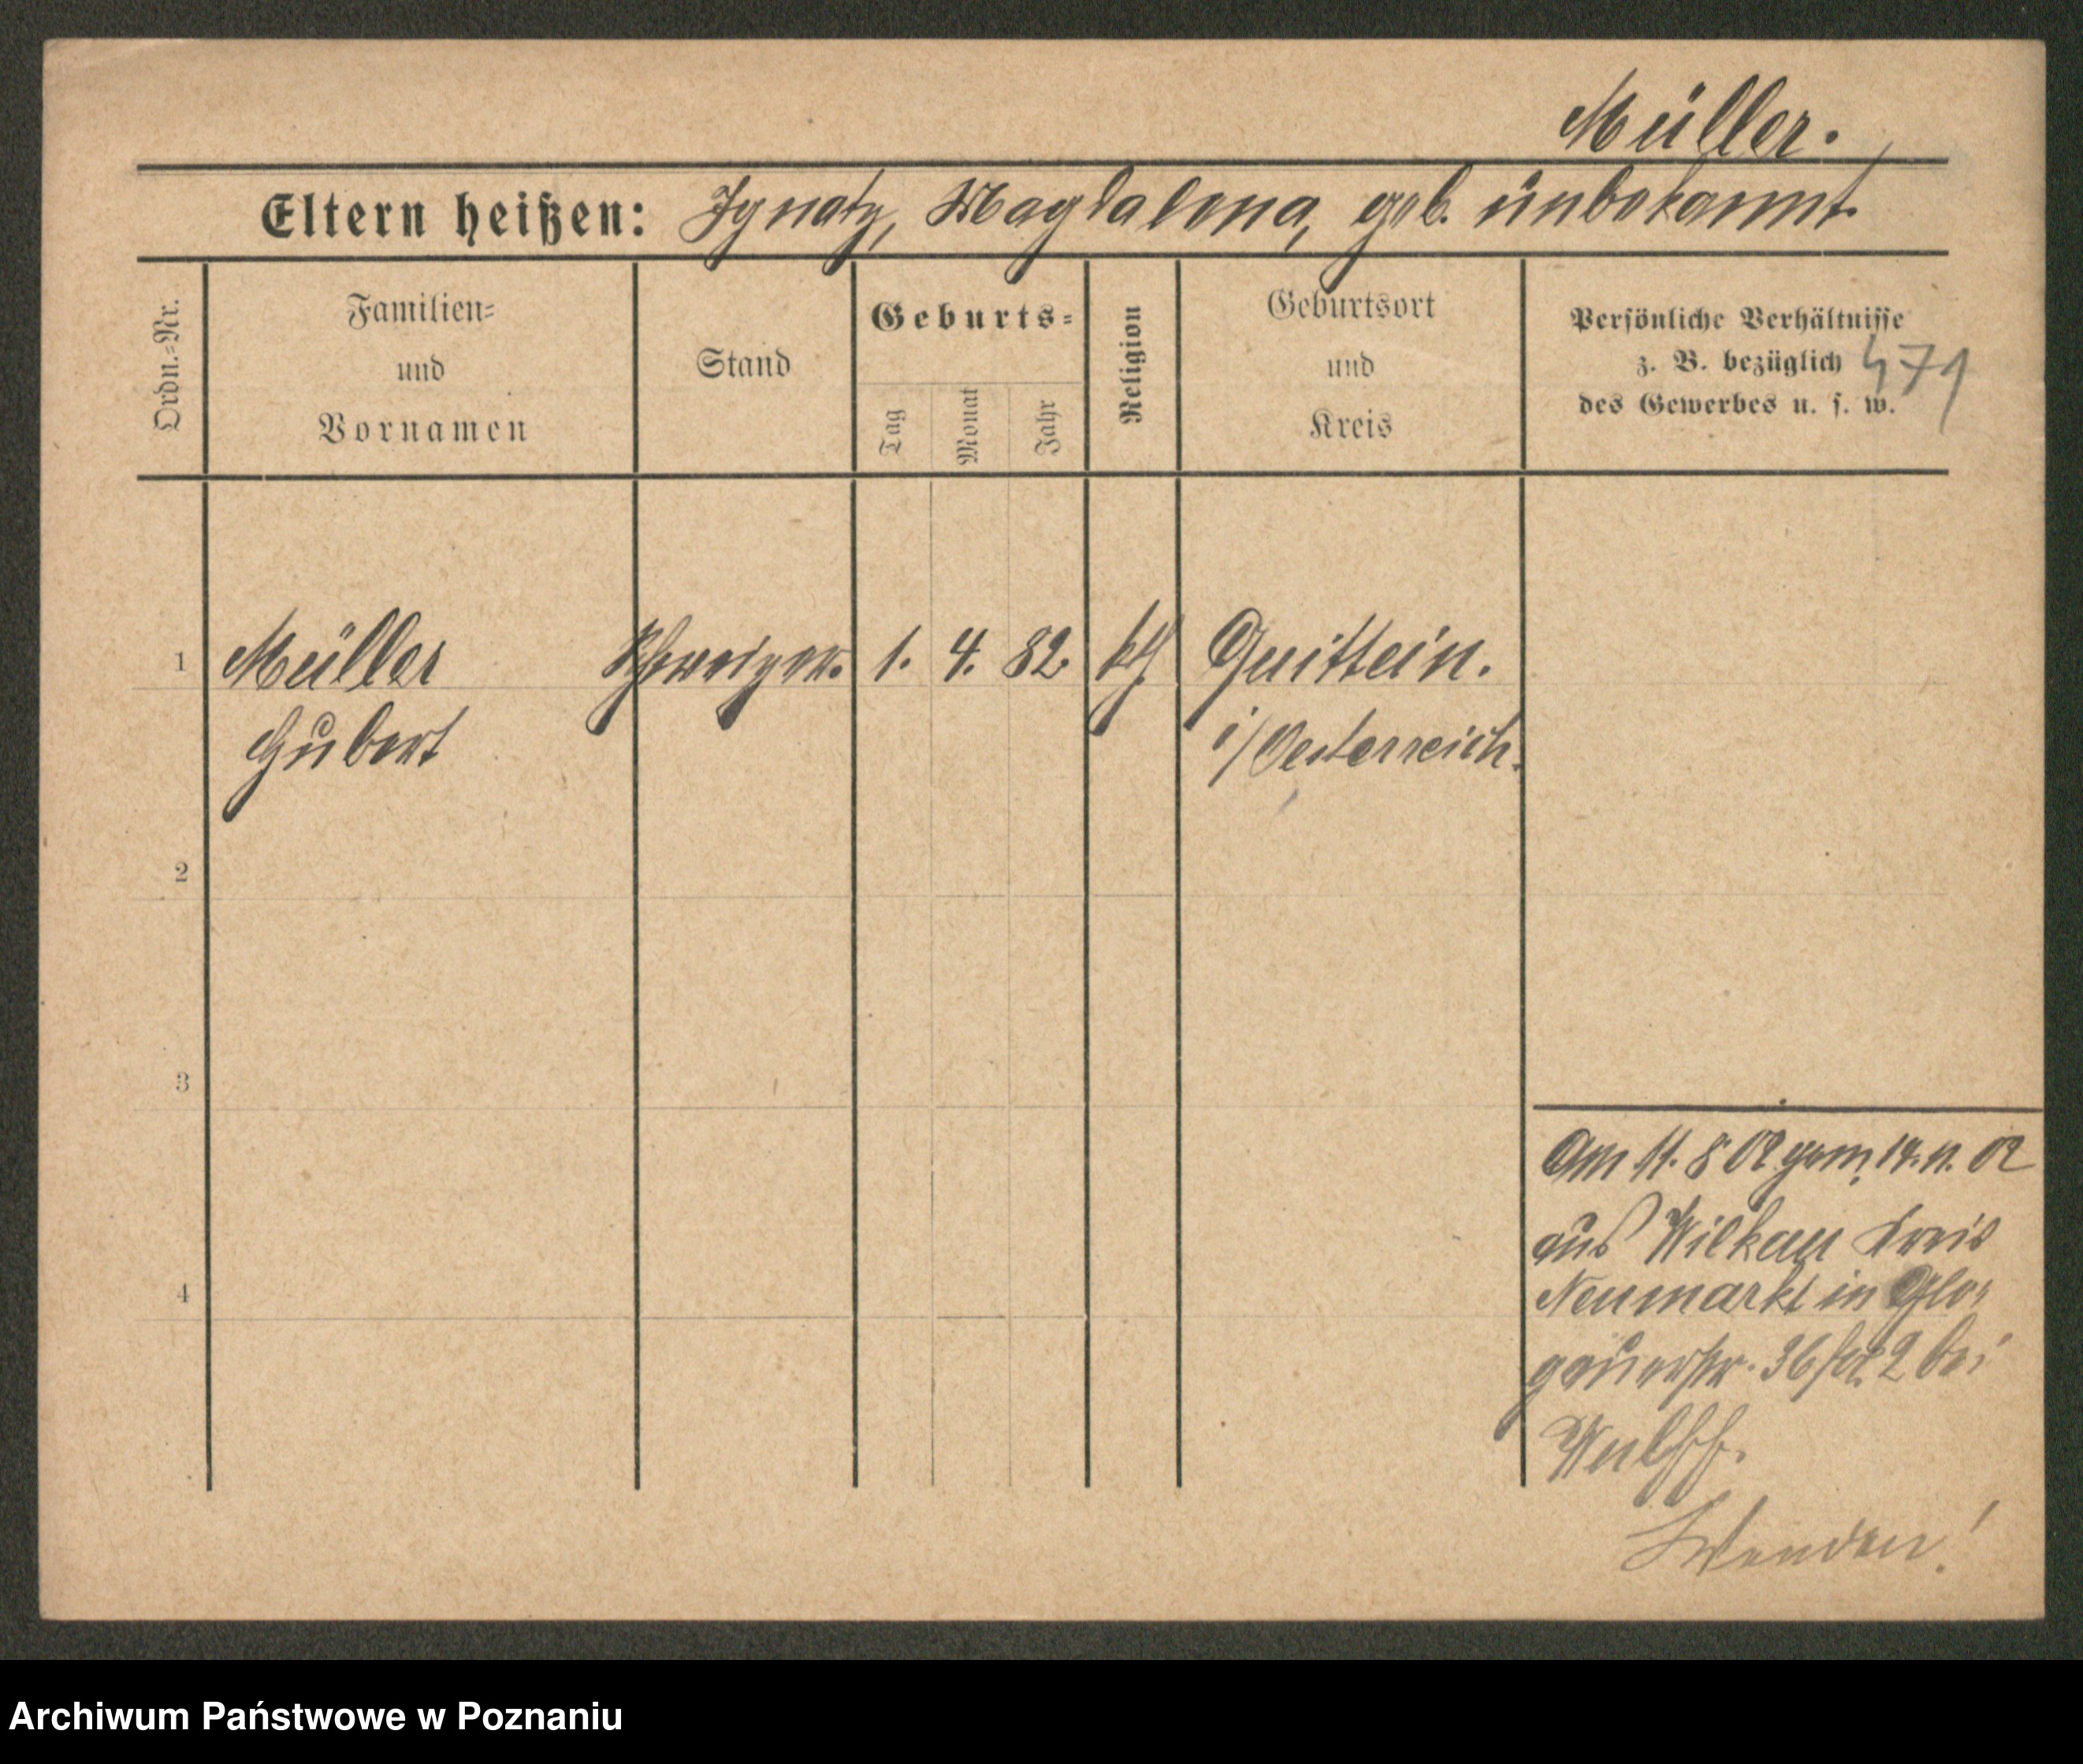 Müller.
Eltern heißen: Ignatz, Magdalena, geb. unbekannt.
Ordn.=Nr.
Familien=
und
Vornamen
Stand
Geburts=
Tag
Monat
Jahr
Religion
Geburtsort
und
Kreis
Persönliche Verhältnisse
z. B. bezüglich
des Gewerbes u. s. w.
471
1 Müller Schweizer. 1. 4. 82. kth Quittein.
Hubert i/Oesterreich.
2
3
4
Am 11. 8 02 gem. 14. 11. 02
aus Wilkau Kreis
Neumarkt in Glo-
gauerstr. 36 2 bei
Wulff.
Wenden!
Archiwum Państwowe w Poznaniu